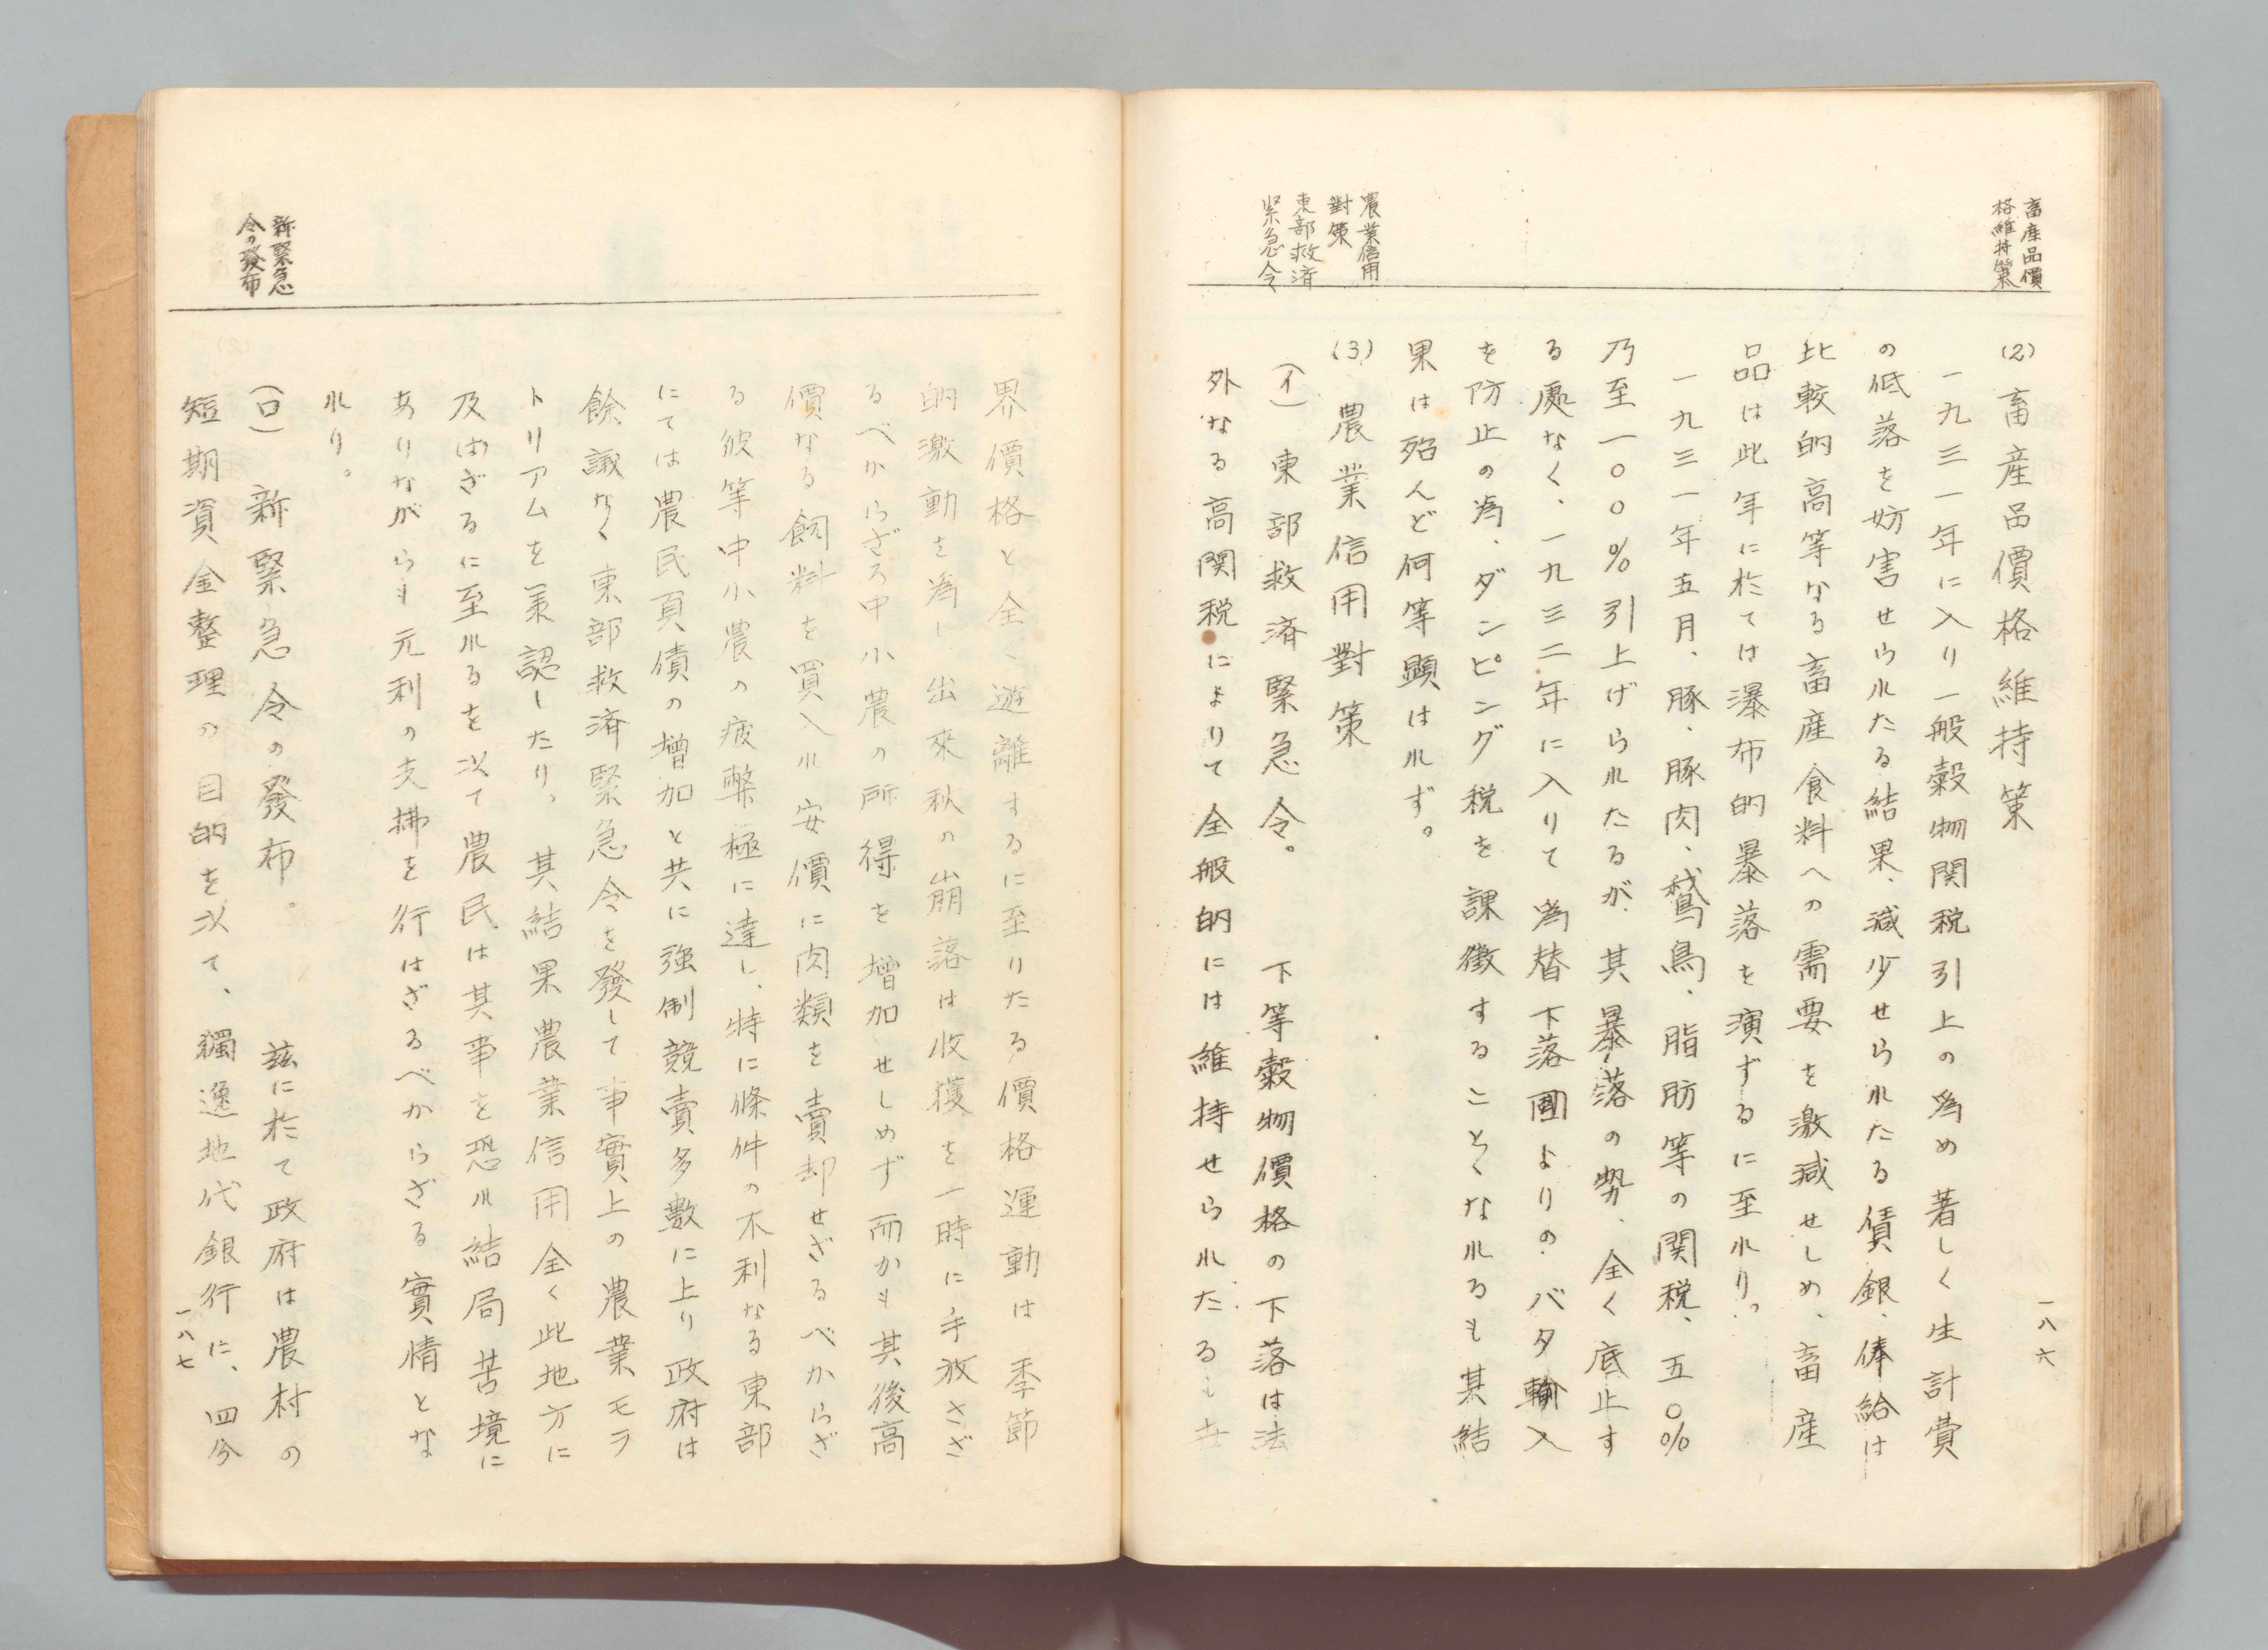 畜産品價
格維持策
(2) 畜産品價格維持策
一九三一年に入り一般穀物関税引上の為め著しく生計費
の低落を妨害せられたる結果、減少せられたる賃銀、俸給は
比較的高等なる畜産食料への需要を激減せしめ、畜産
品は此年に於ては瀑布的暴落を演ずるに至れり。
一九三一年五月、豚、豚肉、鵞鳥、脂肪等の関税、五〇%
乃至一〇〇%引上げられたるが、其暴落の勢、全く底止す
る處なく、一九三二年に入りて為替下落国よりの、バタ輸入
を防止の為、ダンピング税を課徴することゝなれるも其結
果は殆んど何等顕はれず。
農業信用
對策
(3) 農業信用對策
東部救済
緊急令
(イ) 東部救済緊急令。 下等穀物價格の下落は法
外なる高関税によりて全般的には維持せられたるも
一八六
界價格と全く遊離するに至りたる價格運動は季節
的激動を為し出來秋の崩落は收獲を一時に手放さざ
るべからざる中小農の所得を増加せしめず而かも其後高
價なる飼料を買入れ安價に肉類を賣却せざるべからざ
る彼等中小農の疲弊極に達し、特に條件の不利なる東部
にては農民負債の増加と共に強制競賣多數に上り政府は
餘議なく東部救済緊急令を發して事實上の農業モラ
トリアムを承認したり。其結果農業信用全く此地方に
及ばざるに至れるを以て農民は其事を恐れ結局苦境に
ありながらも元利の支拂を行はざるべからざる實情とな
れり。
新緊急
令の發布
(ロ) 新緊急令の發布。 茲に於て政府は農村の
短期資金整理の目的を以て、獨逸地代銀行に、四分
一八七